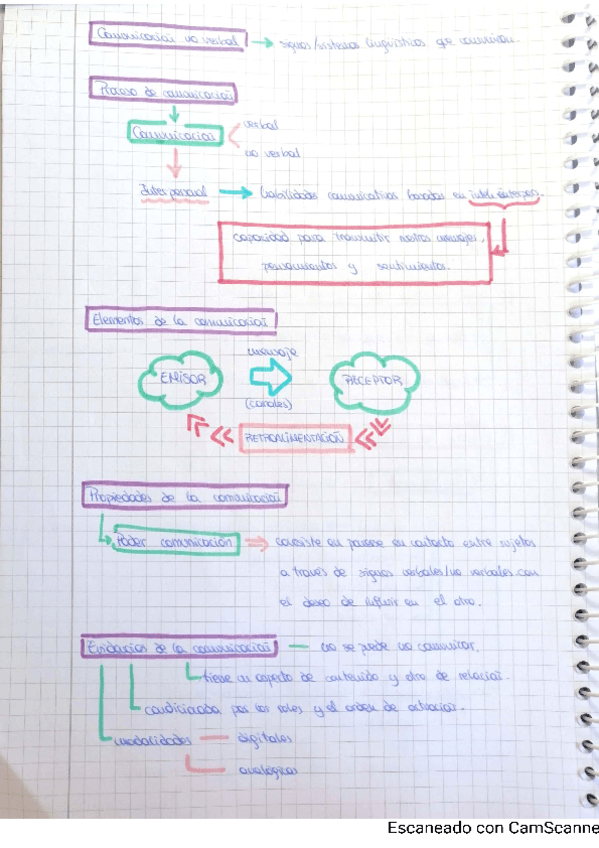 Comunicación no verbal → signos/sistemas lingüísticos que comunican.
Proceso de comunicación
Comunicación
verbal
no verbal
Interpersonal → habilidades comunicativas basadas en intel. interper.
capacidad para transmitir nuestros mensajes,
pensamientos y sentimientos.
Elementos de la comunicación
mensaje
EMISOR
RECEPTOR
(canales)
RETROALIMENTACIÓN
Propiedades de la comunicación
Poder comunicación ⇒ consiste en ponerse en contacto entre sujetos
a través de signos verbales/no verbales con
el deseo de influir en el otro.
Evidencias de la comunicación — no se puede no comunicar.
tiene un aspecto de contenido y otro de relación.
condicionada por los roles y el orden de actuación.
modalidades — digitales
analógicas
Escaneado con CamScanne